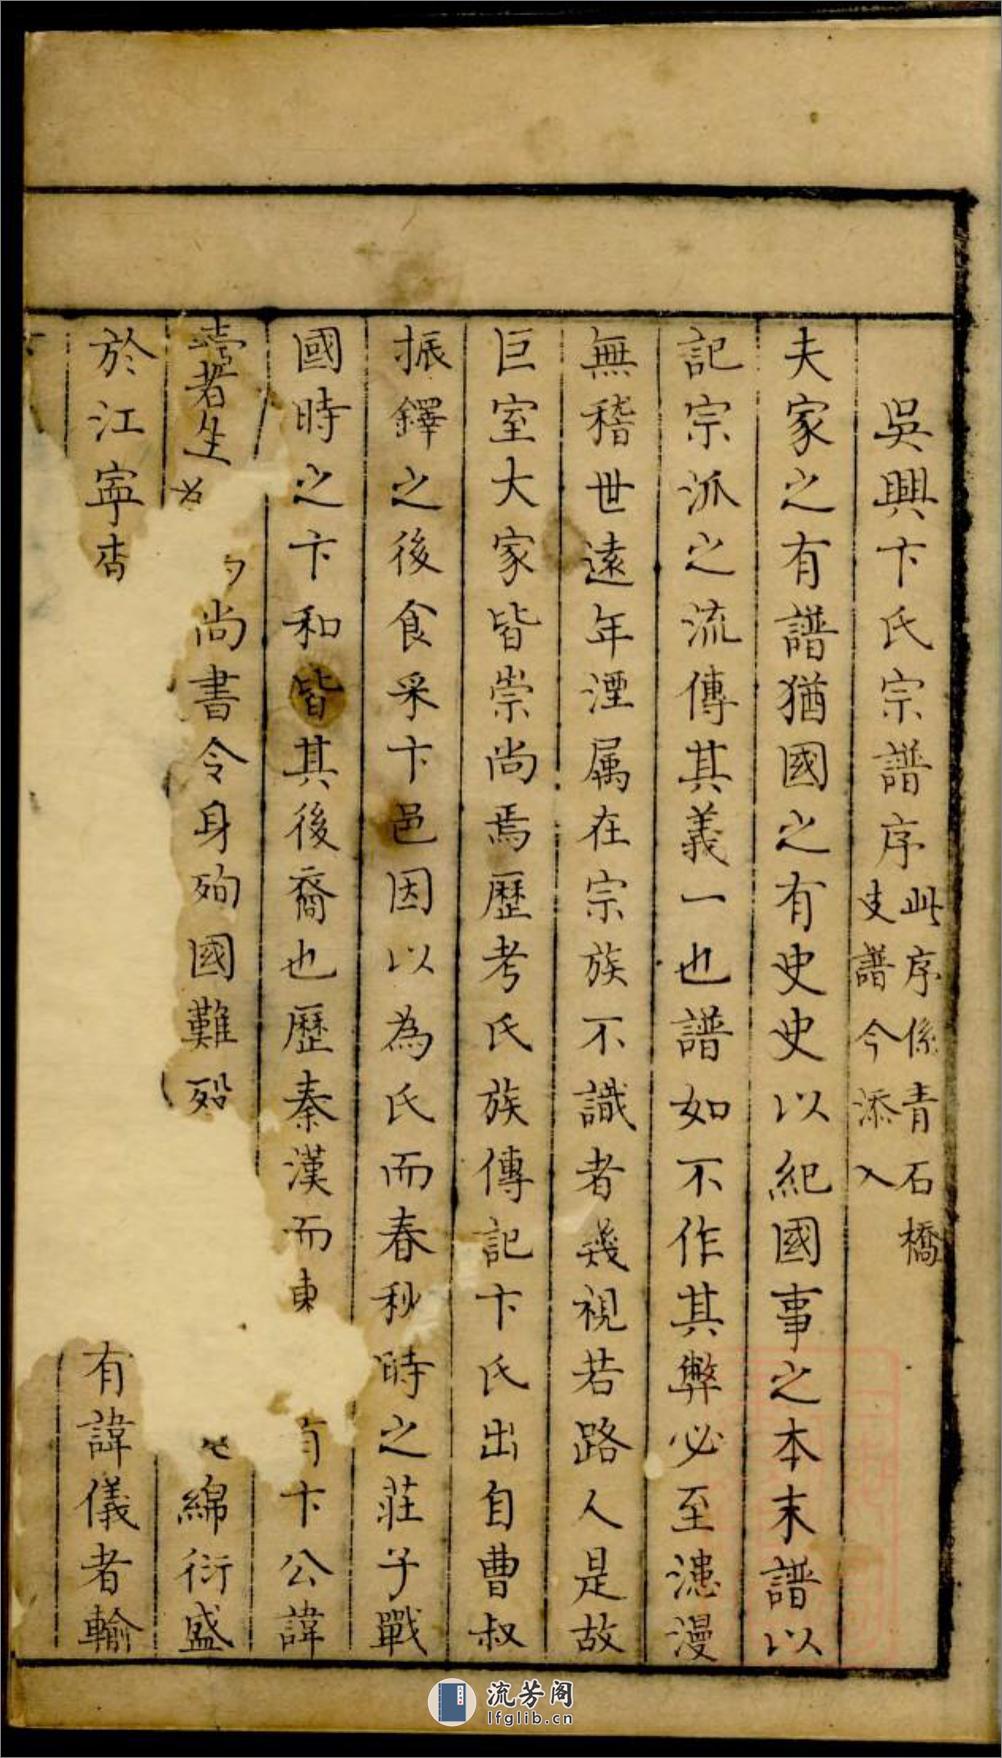 吳興卞氏宗譜序此序係青石橋支譜今添入
夫家之有譜猶國之有史史以紀國事之本末譜以
記宗派之流傳其義一也譜如不作其弊必至漶漫
無稽世遠年湮属在宗族不識者幾視若路人是故
巨室大家皆崇尚焉歷考氏族傳記卞氏出自曹叔
振鐸之後食采卞邑因以為氏而春秋時之莊子戰
國時之卞和皆其後裔也歷秦漢而東有卞公諱
壼者生尚書令身殉國難殁綿衍盛
於江寧有諱儀者輸
流芳阁
lfglib.cn